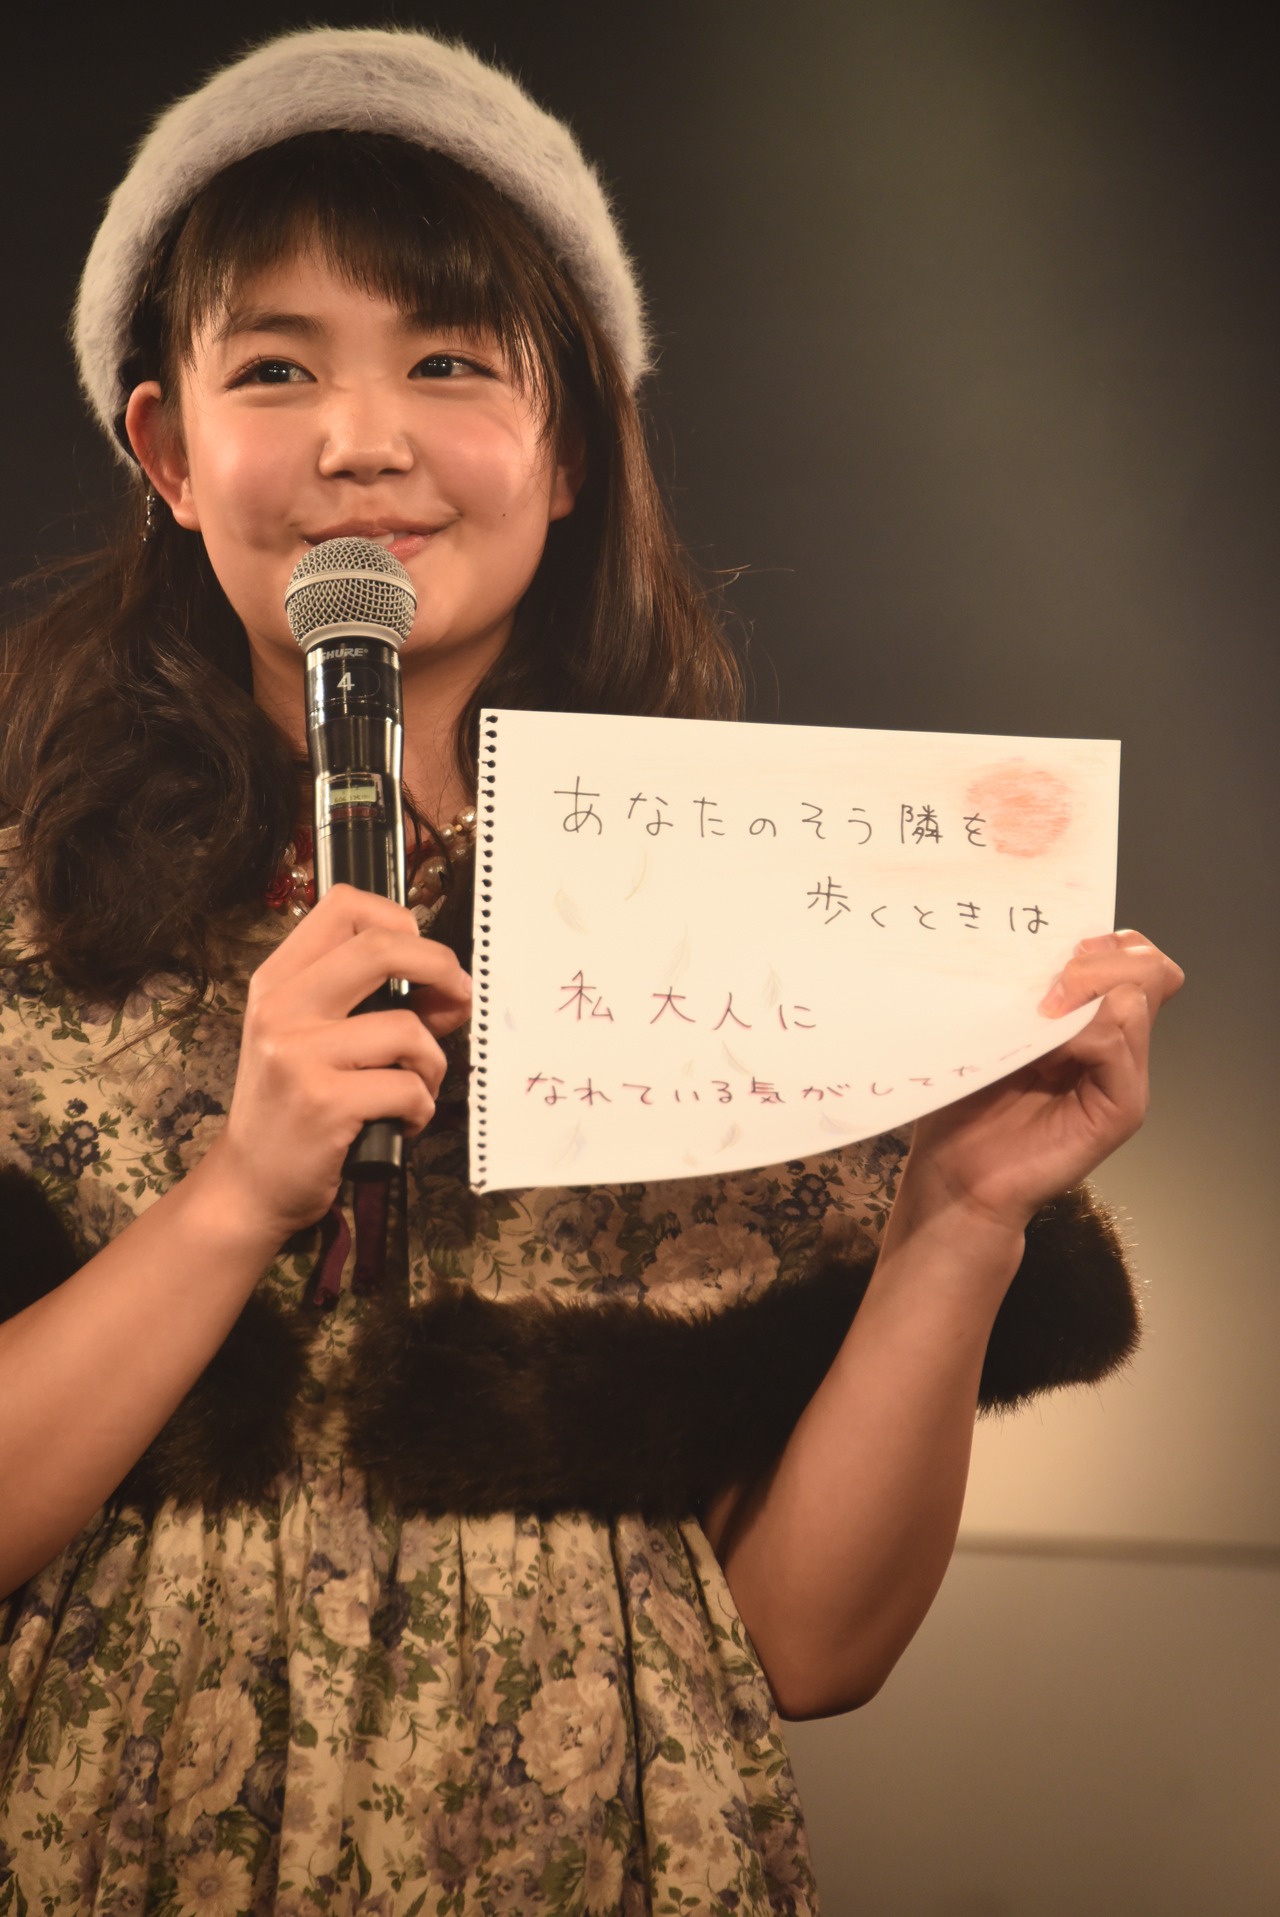 SHURE
4
あなたのそう隣を
歩くときは
私大人に
なれている気がしてた